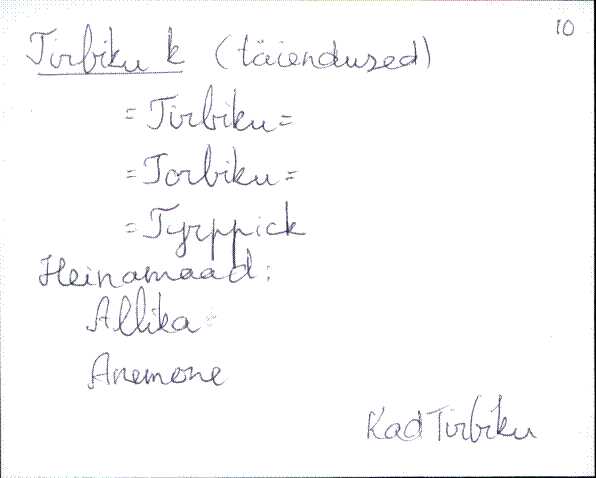 10
Tirbiku k (täiendused)
= Tirbiku =
= Torbiku =
= Tyrppick
Heinamaad:
Allika
Anemone
Kad Tirbiku